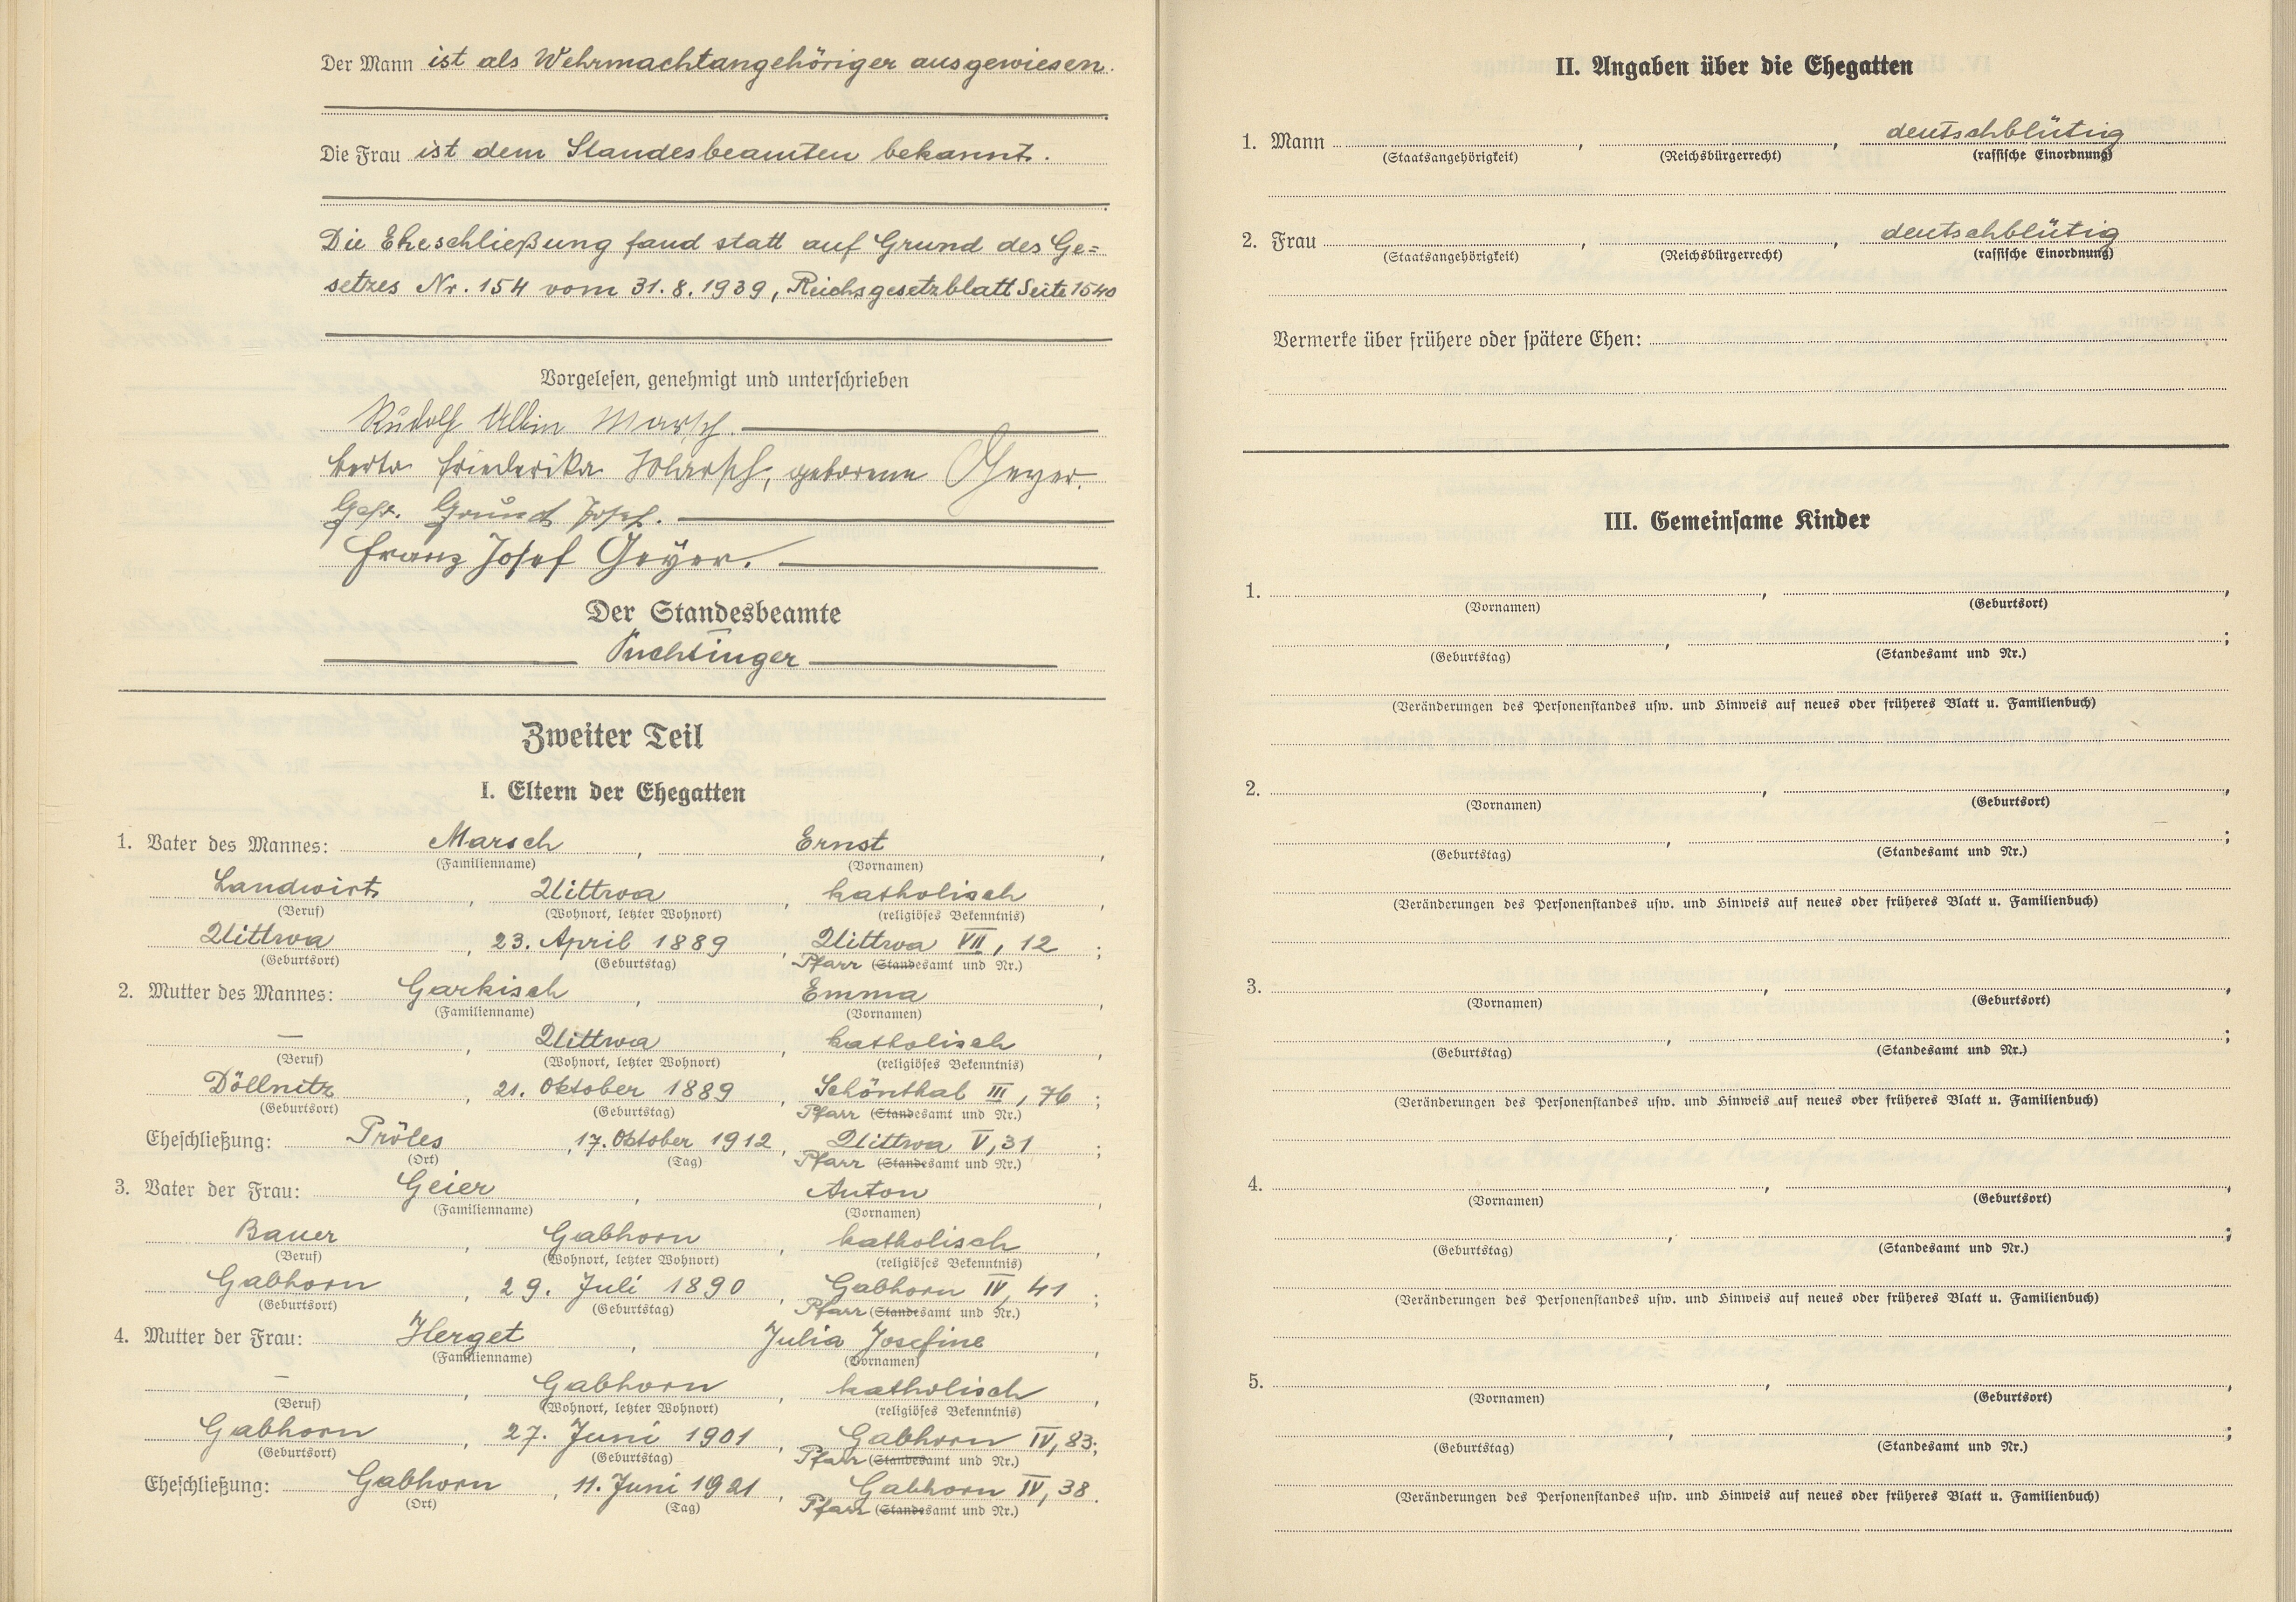 Der Mann ist als Wehrmachtangehöriger ausgewiesen.
Die Frau ist dem Standesbeamten bekannt.
Die Eheschließung fand statt auf Grund des Ge=
setzes Nr. 154 vom 31.8.1939, Reichsgesetzblatt Seite 1540
Vorgelesen, genehmigt und unterschrieben
Rudolf Albin Marsch.
Berta Friederika Marsch, geborene Geyer.
Gefr. Grund Josef.
Franz Josef Geyer.
Der Standesbeamte
Puchtinger
Zweiter Teil
I. Eltern der Ehegatten
1. Vater des Mannes: Marsch, Ernst,
(Familienname) (Vornamen)
Landwirt, Uittwa, katholisch,
(Beruf) (Wohnort, letzter Wohnort) (religiöses Bekenntnis)
Uittwa, 23. April 1889, Uittwa VII, 12;
(Geburtsort) (Geburtstag) Pfarr (Standesamt und Nr.)
2. Mutter des Mannes: Garkisch, Emma,
(Familienname) (Vornamen)
—, Uittwa, katholisch,
(Beruf) (Wohnort, letzter Wohnort) (religiöses Bekenntnis)
Döllnitz, 21. Oktober 1889, Schönthal III, 76;
(Geburtsort) (Geburtstag) Pfarr (Standesamt und Nr.)
Eheschließung: Pröles, 17. Oktober 1912, Uittwa V, 31;
(Ort) (Tag) Pfarr (Standesamt und Nr.)
3. Vater der Frau: Geier, Anton,
(Familienname) (Vornamen)
Bauer, Gabhorn, katholisch,
(Beruf) (Wohnort, letzter Wohnort) (religiöses Bekenntnis)
Gabhorn, 29. Juli 1890, Gabhorn IV, 41;
(Geburtsort) (Geburtstag) Pfarr (Standesamt und Nr.)
4. Mutter der Frau: Herget, Julia Josefine,
(Familienname) (Vornamen)
—, Gabhorn, katholisch,
(Beruf) (Wohnort, letzter Wohnort) (religiöses Bekenntnis)
Gabhorn, 27. Juni 1901, Gabhorn IV, 83;
(Geburtsort) (Geburtstag) Pfarr (Standesamt und Nr.)
Eheschließung: Gabhorn, 11. Juni 1921, Gabhorn IV, 38.
(Ort) (Tag) Pfarr (Standesamt und Nr.)
II. Angaben über die Ehegatten
1. Mann , , deutschblütig
(Staatsangehörigkeit) (Reichsbürgerrecht) (rassische Einordnung)
2. Frau , , deutschblütig
(Staatsangehörigkeit) (Reichsbürgerrecht) (rassische Einordnung)
Vermerke über frühere oder spätere Ehen:
III. Gemeinsame Kinder
1. , ,
(Vornamen) (Geburtsort)
, ;
(Geburtstag) (Standesamt und Nr.)
(Veränderungen des Personenstandes usw. und Hinweis auf neues oder früheres Blatt u. Familienbuch)
2. , ,
(Vornamen) (Geburtsort)
, ;
(Geburtstag) (Standesamt und Nr.)
(Veränderungen des Personenstandes usw. und Hinweis auf neues oder früheres Blatt u. Familienbuch)
3. , ,
(Vornamen) (Geburtsort)
, ;
(Geburtstag) (Standesamt und Nr.)
(Veränderungen des Personenstandes usw. und Hinweis auf neues oder früheres Blatt u. Familienbuch)
4. , ,
(Vornamen) (Geburtsort)
, ;
(Geburtstag) (Standesamt und Nr.)
(Veränderungen des Personenstandes usw. und Hinweis auf neues oder früheres Blatt u. Familienbuch)
5. , ,
(Vornamen) (Geburtsort)
, ;
(Geburtstag) (Standesamt und Nr.)
(Veränderungen des Personenstandes usw. und Hinweis auf neues oder früheres Blatt u. Familienbuch)